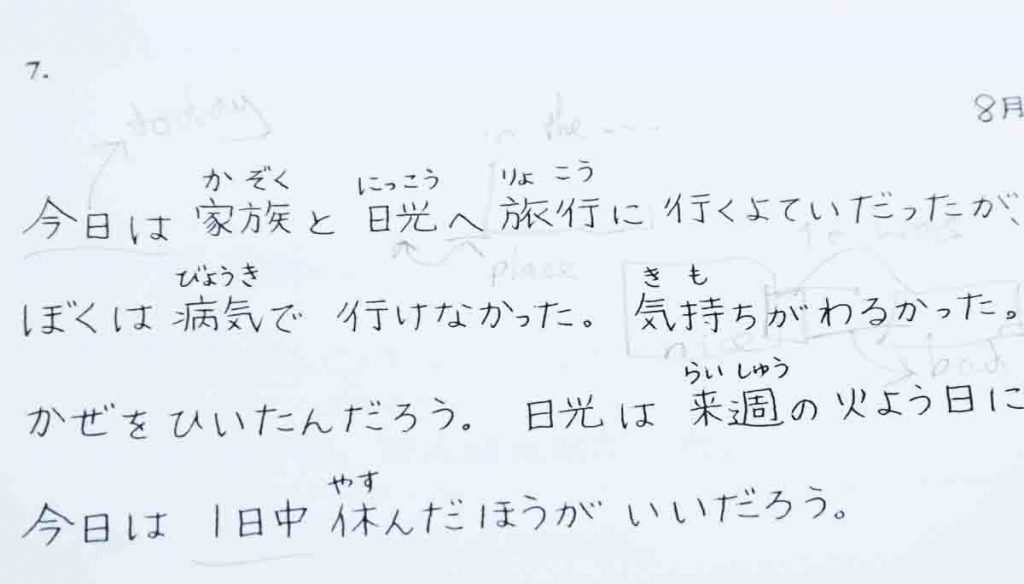 7.
8月
today
in the ....
かぞく にっこう りょこう
今日は 家族と 日光へ 旅行に 行くよていだったが、
place
びょうき きも
ぼくは 病気で 行けなかった。 気持ちがわるかった。
nice bad
らいしゅう
かぜをひいたんだろう。 日光は 来週の 火よう日に
やす
今日は 1日中 休んだほうが いいだろう。